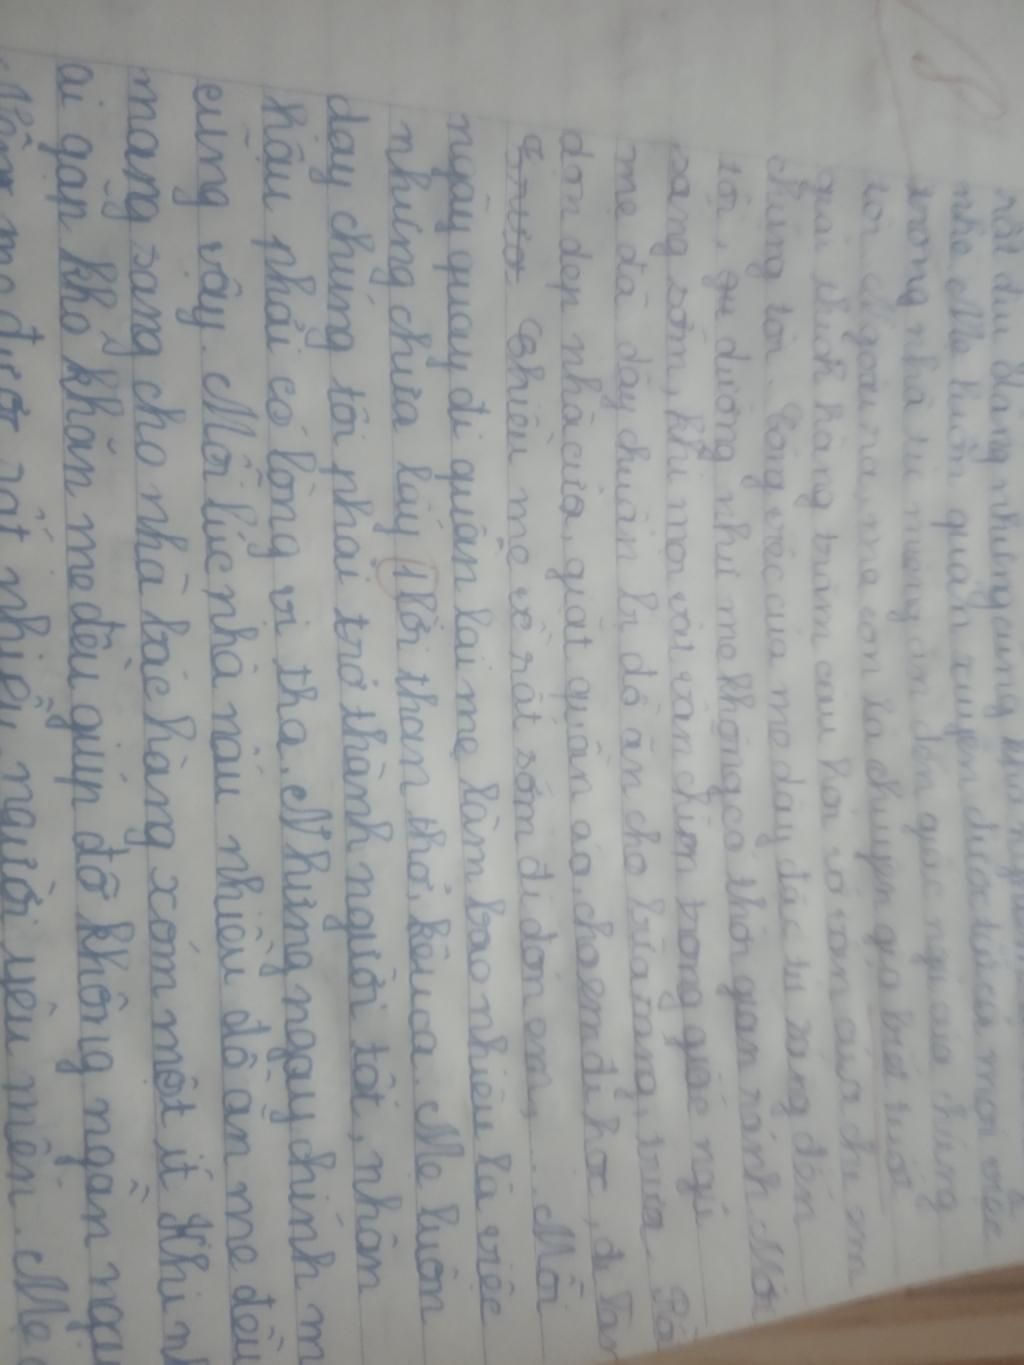 rất dịu dàng nhưng cũng
nhé Mẹ luôn quán xuyến được tất cả mọi việc
trong nhà từ miếng ăn đến giấc ngủ của chúng
tôi Ngoài ra, mẹ còn là chuyên gia biết tuốt
giải thích hàng trăm câu hỏi vì sao của chị em
chúng tôi. Công việc của mẹ dày đặc từ sáng đến
tối, gần như mẹ không có thời gian rảnh Mỗi
sáng sớm, khi mọi vật vẫn chìm trong giấc ngủ
mẹ đã dậy chuẩn bị đồ ăn cho bữa sáng, trưa. Rồi
dọn dẹp nhà cửa, giặt quần áo, cho em đi học, đi làm
Chiều mẹ về rất sớm đi đón em,... Mỗi
ngày quay đi quẩn lại mẹ làm bao nhiêu là việc
nhưng chưa lấy 1 lời than thở, kêu ca. Mẹ luôn
dạy chúng tôi phải trở thành người tốt, nhân
hậu phải có lòng vị tha. Những ngày chính m
cũng vậy. Mỗi lúc nhà nấu nhiều đồ ăn mẹ đều
mang sang cho nhà bác hàng xóm một ít Khi n
ai gặp khó khăn mẹ đều giúp đỡ không ngần ngại
mẹ được rất nhiều người yêu mến. Mẹ